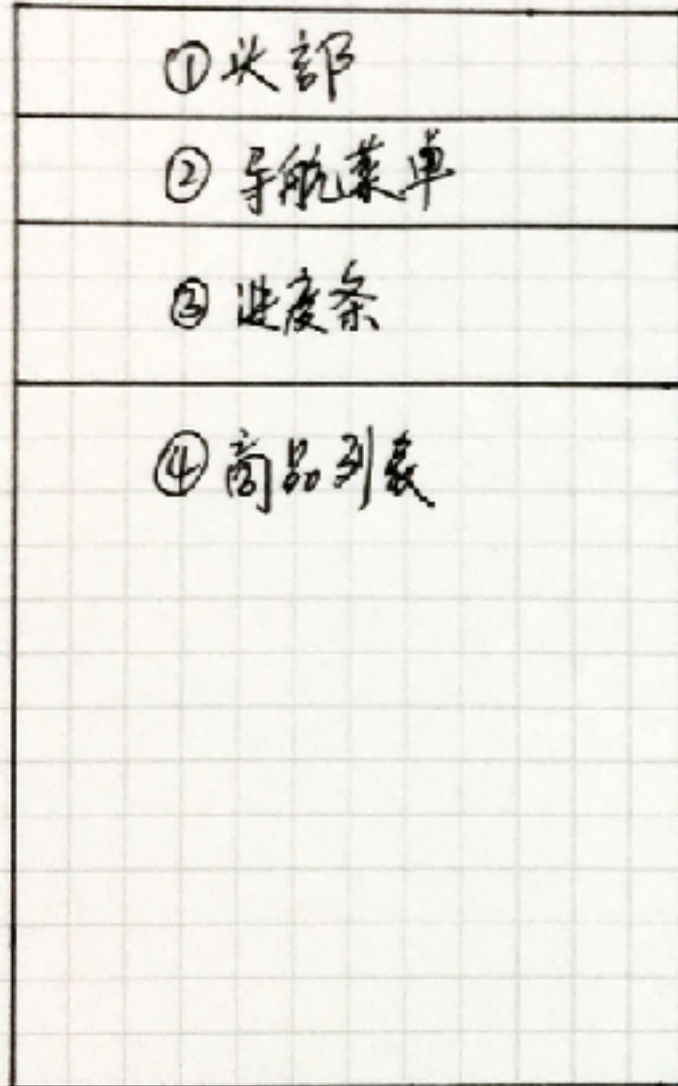 ①头部
②导航菜单
③进度条
④商品列表